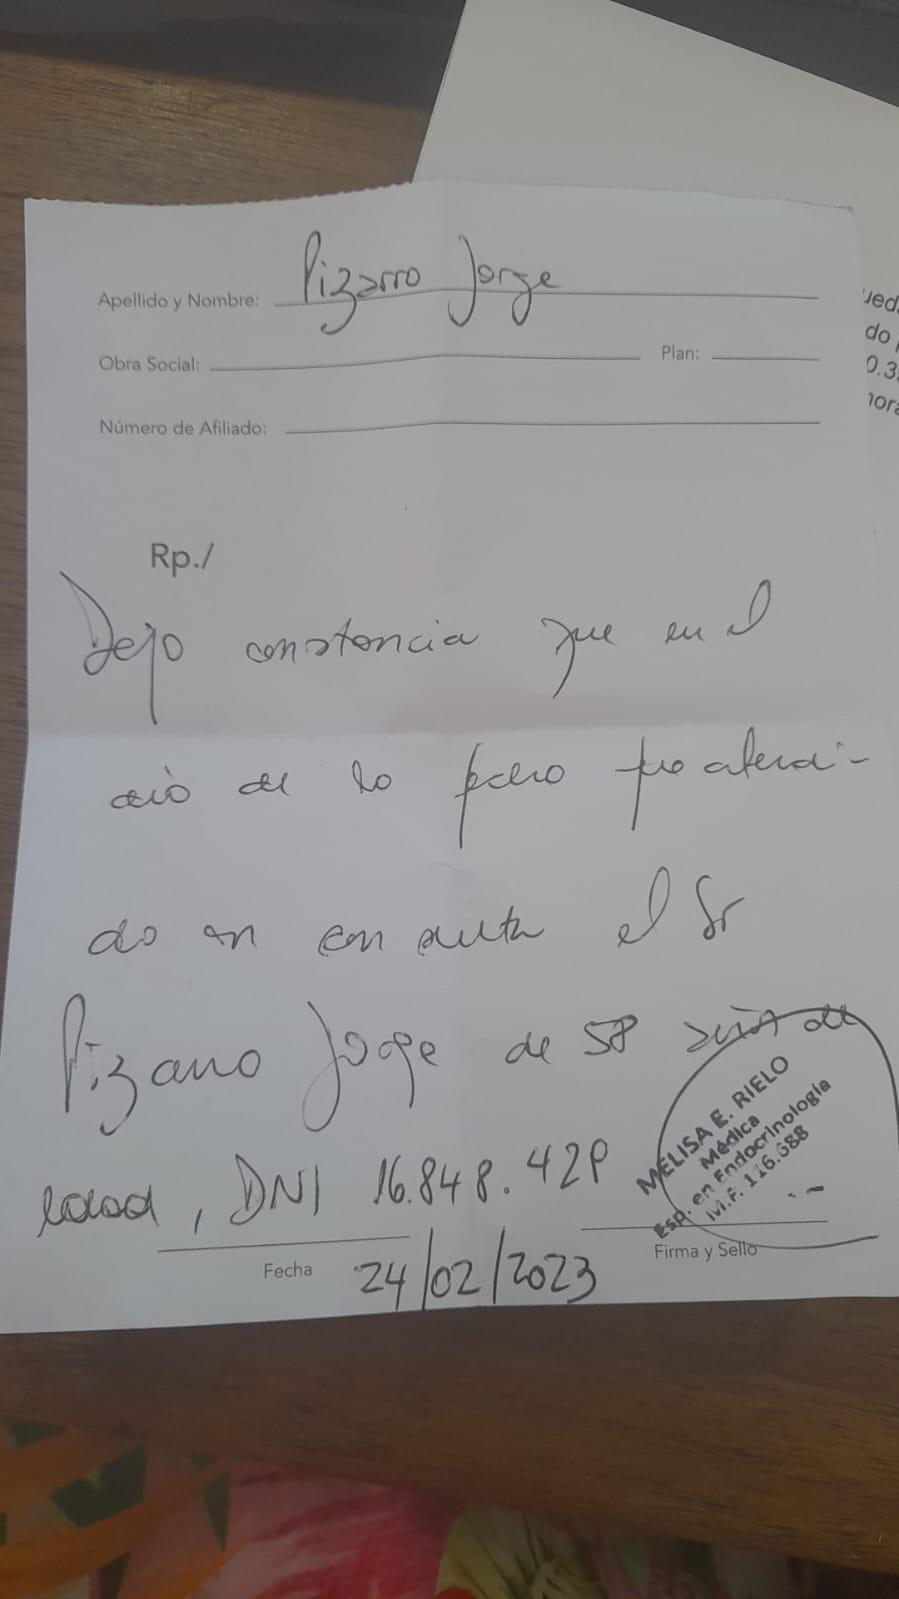 Apellido y Nombre: Pizarro Jorge
Obra Social: Plan:
Número de Afiliado:
Rp./
Dejo constancia que en el
día de la fecha fue atendi-
do en consulta el Sr
Pizarro Jorge de 58 años de
edad, DNI 16.848.429
MELISA E. RIELO
Médica
Esp. en Endocrinología
M.P. 116.688
Fecha 24/02/2023 Firma y Sello
do
0.3